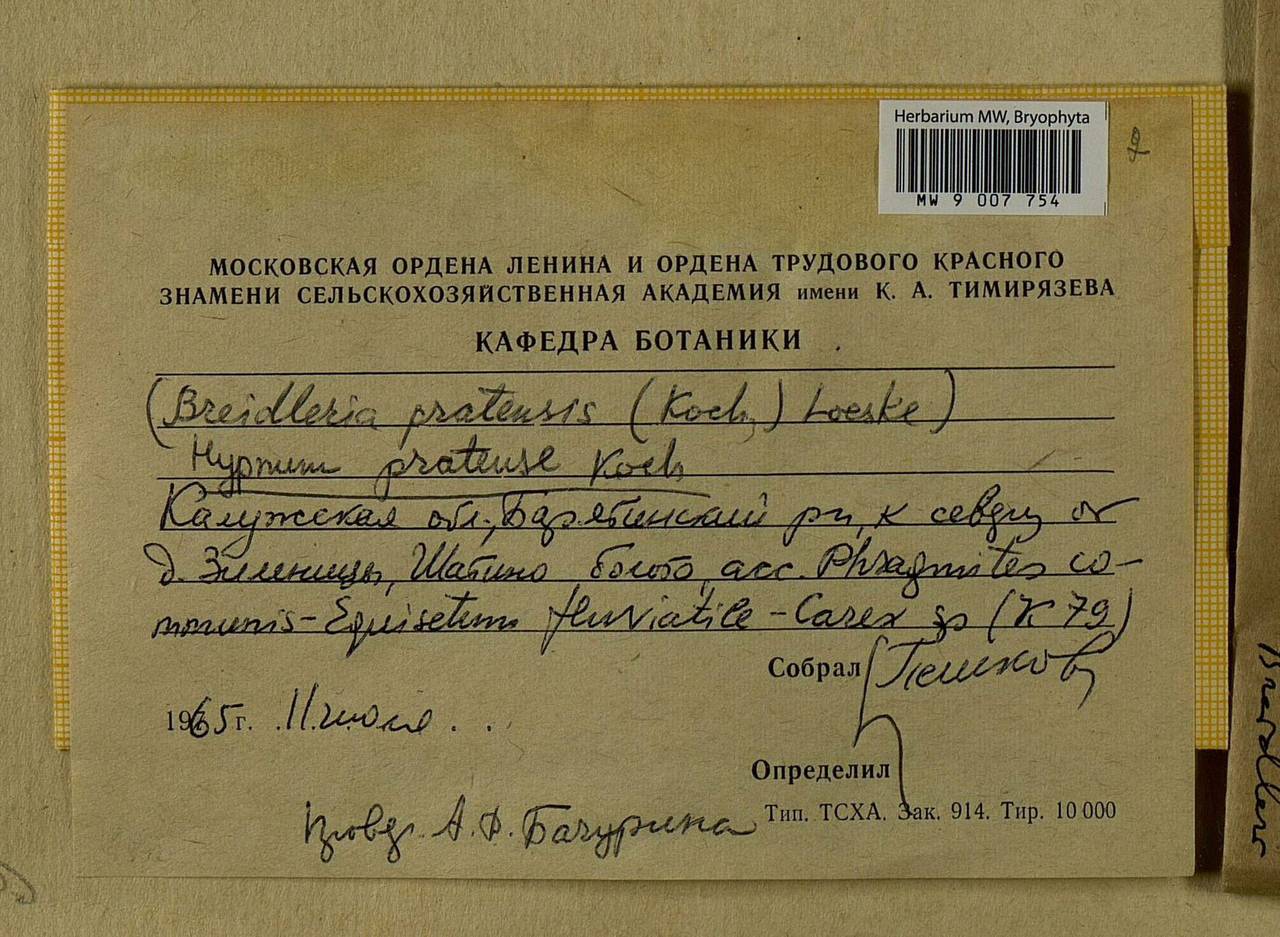 Herbarium MW, Bryophyta
MW 9 007 754
МОСКОВСКАЯ ОРДЕНА ЛЕНИНА И ОРДЕНА ТРУДОВОГО КРАСНОГО
ЗНАМЕНИ СЕЛЬСКОХОЗЯЙСТВЕННАЯ АКАДЕМИЯ имени К. А. ТИМИРЯЗЕВА
КАФЕДРА БОТАНИКИ
(Breidleria pratensis (Koch) Loeske)
Hypnum pratense Koch
Калужская обл., Барятинский рн, к от
д. Зиленицы, Шатино болото, асс. Phragmites co-
mmunis - Equisetum fluviatile - Carex sp (К 79)
Собрал Пешкова
1965 г. 11 июля
Определил
А. Ф. Бачурина
Тип. ТСХА. Зак. 914. Тир. 10 000